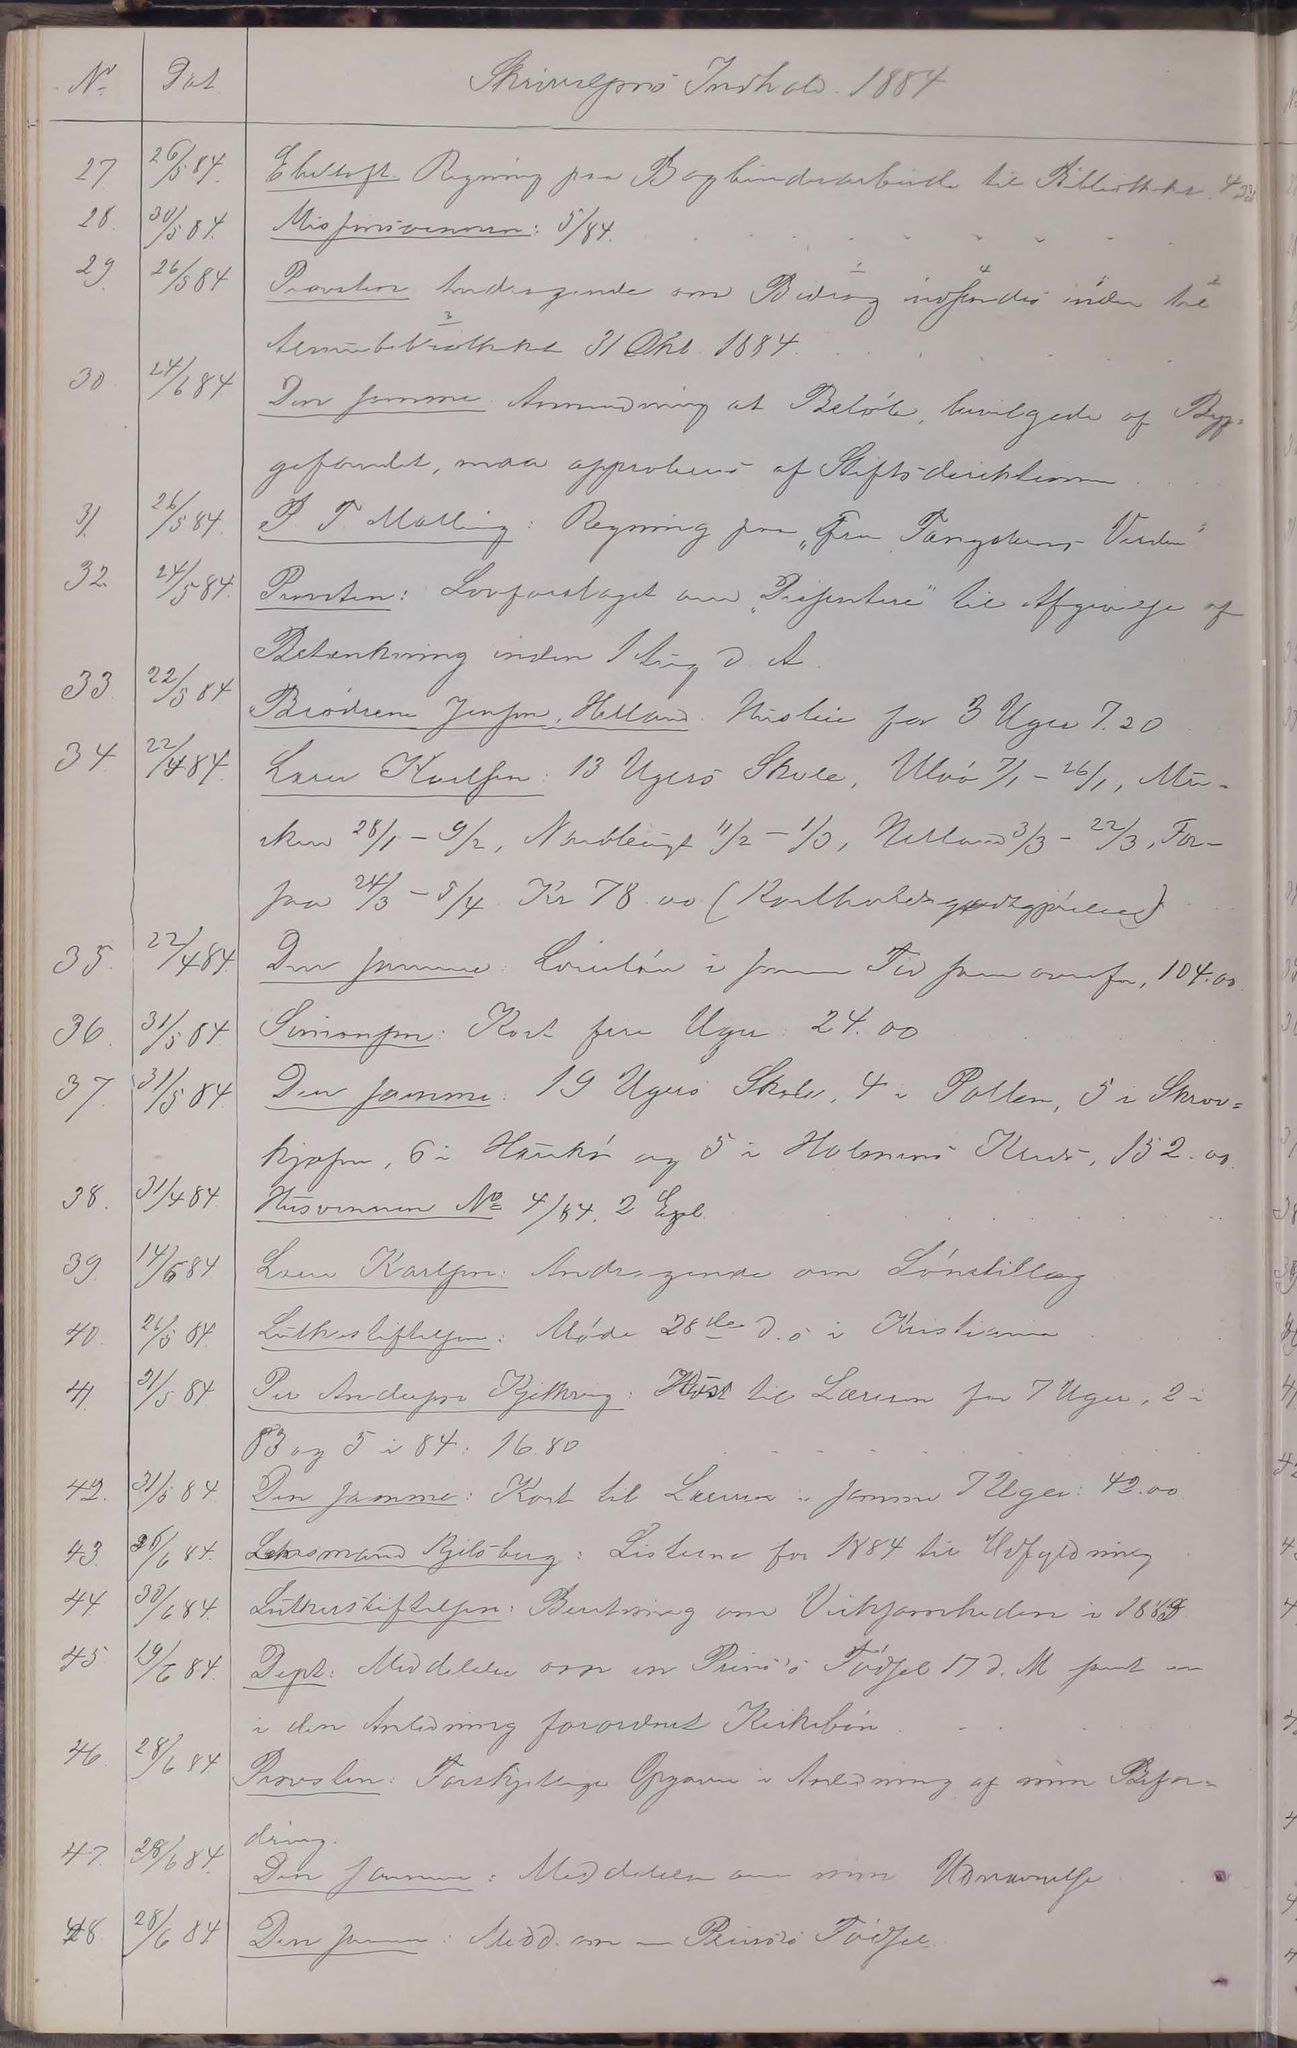 No. Dat Skrivelsens Indhold. 1884
27 26/5 84. Ebeltoft. Regning paa Bogbinderarbeide til Bibliotheket.
28. 30/5 84. Missionsvennen: 5/84.
29. 26/5 84 Provsten Andragende om Bidrag indsendes inden til
Almuebibliotheket 31 Okt. 1884
30. 24/6 84 Den samme. Anmodning at Beløb, bevilgede af Byg-
gefondet, maa approberes af Stiftsdirektionen
31. 26/5 84. P. T. Malling: Regning paa „Fra Fangslens Verden"
32 24/5 84. Provsten: Lovforslaget om „Dissentere" til Afgivelse af
Betænkning inden 1 Aug d. A.
33. 22/5 84 Brødrene Jensen, Helland. Husleie for 3 Uger 7.20
34. 22/4 84. Lærer Karlsen: 13 Ugers Skole, Ulvø 7/1 - 26/1, Mu-
sken 28/1 - 9/2, 11/2 - 1/3, Helland 3/3 - 22/3, For-
saa 24/3 - 5/4. Kr 78.00 (Kostholdsgodtgjørelse)
35. 22/4 84. Den samme: Løn i samme Tid som ovenfor, 104.00
36. 31/5 84. Simonsen: Kost fire Uger: 24.00
37. 31/5 84. Den samme: 19 Ugers Skole, 4 i Pollen, 5 i Skrov-
kjosen, 6 i Haukø og 5 i Holmens Kreds, 152.00.
38. 31/4 84 Husvennen No 4/84. 2 Expl.
39. 14/6 84 Lærer Karlsen: Andragende om Lønstillæg
40. 26/5 84. Lutherstiftelsen: Møde 28de d. s. i Kristiania
41. 31/5 84 Per Andersen Kjelkring: Hus til Læreren for 7 Uger, 2 i
83 og 5 i 84: 16.80
42. 31/5 84 Den samme: Kost til Læreren i samme 7 Uger: 42.00
43. 26/6 84. Lensmand Kjelsberg: Listerne for 1884 til Udfyldning
44 30/6 84. Lutherstiftelsen: Beretning om Virksomheden i 1883
45. 19/6 84. Dept: Meddelelse om en Prins's Fødsel 17 d. M samt en
i den Anledning forordnet Kirkebøn
46. 28/6 84 Provsten: Forskjellige Opgaver i Anledning af min Befor-
dring.
47. 28/6 84. Den samme: Meddelelse om min Udnævnelse
48. 28/6 84 Den samme: Medd. om en Prins's Fødsel.